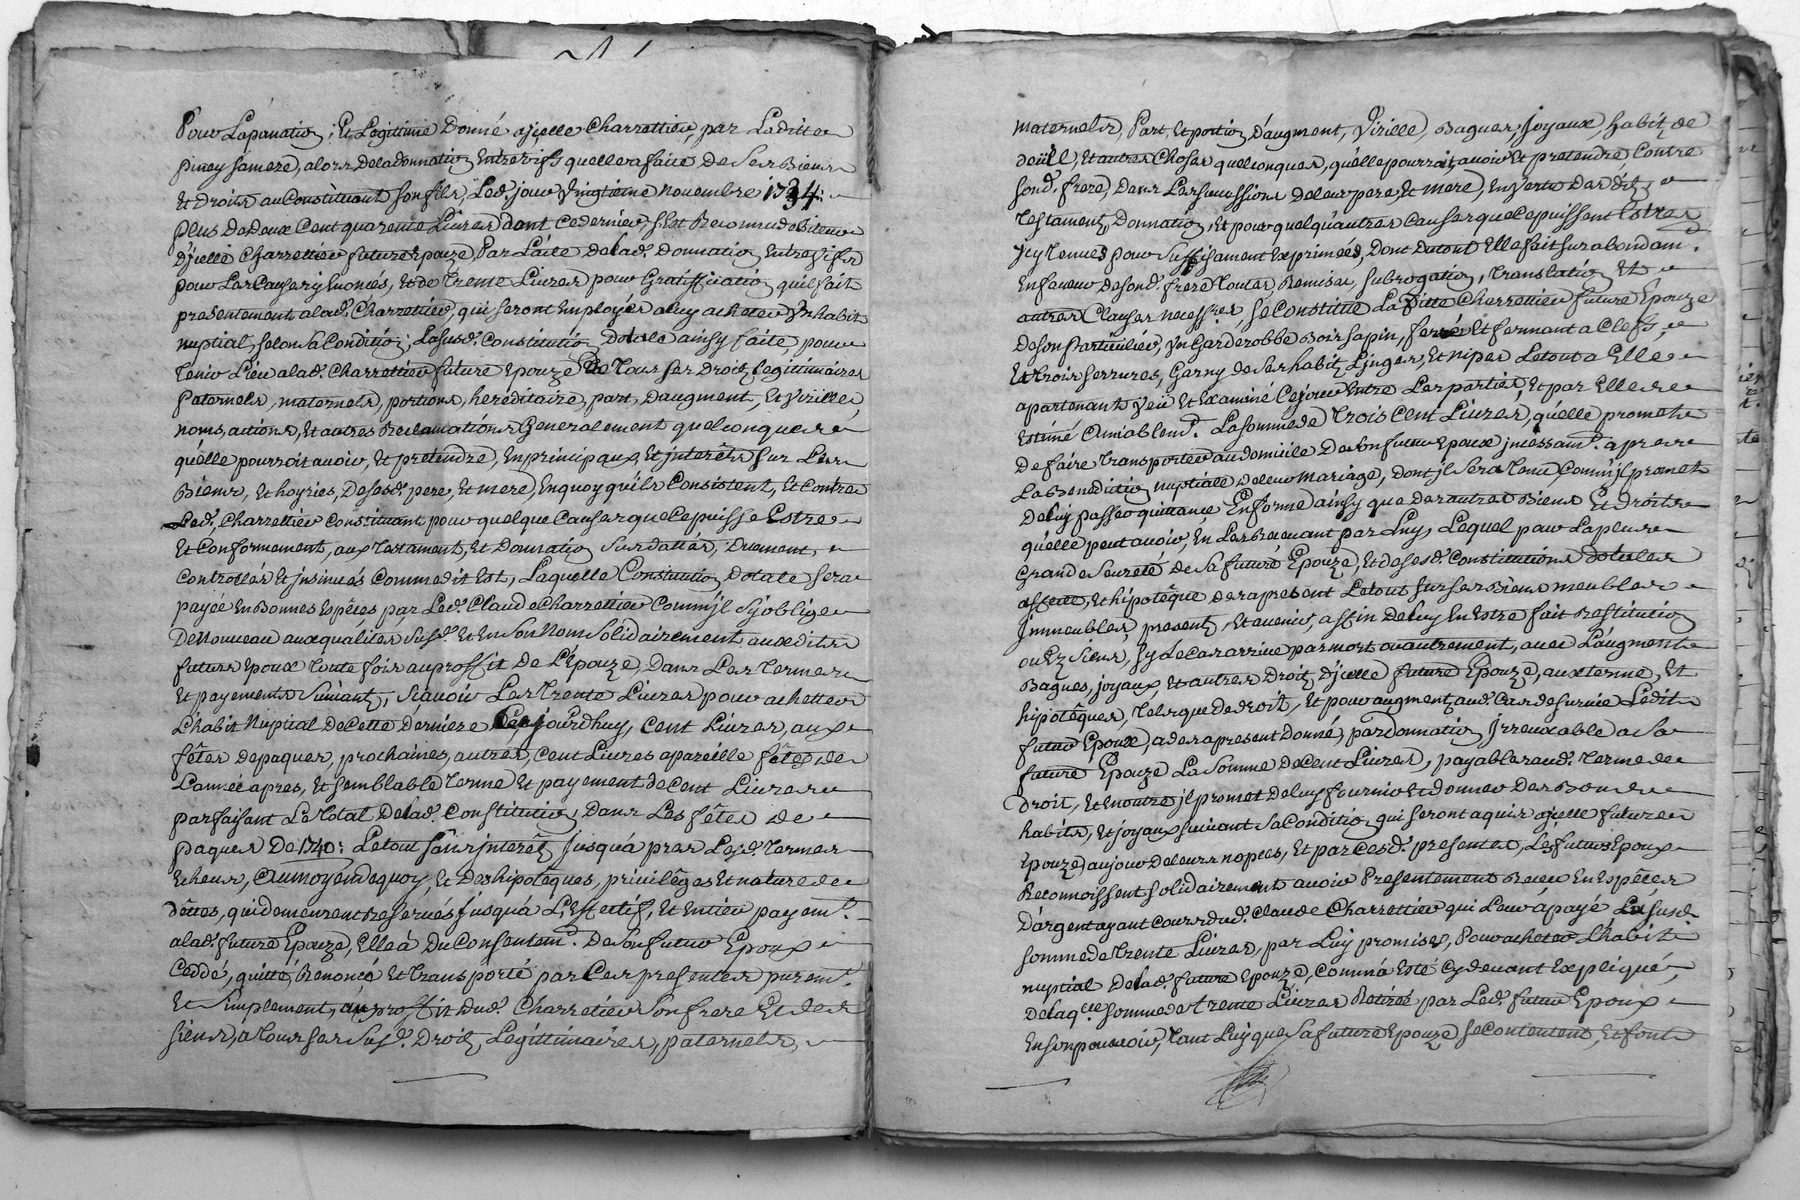 Pour Lapanation, Et Legitimie Donné ajcelle Charrettier, par Laditte
pirrey sa mere, alors de la donnation Entrevifs quelle a faite De Ses Biens
Et Droits au Constituant son fils, Led. jour Vingtieme Novembre 1734:
plus De Deux Cent quarente Livres dont Ce dernier, s'Est Reconnu debiteur
D'jcelle Charrettier future Epouze Par L'acte De lad. Donnation Entrevifs
pour Les Causes y Enoncés, Et de Trente Livres pour Gratiffication quil fait
presentement a lad. Charrettier, qui seront Employés a luy acheter Vn habit
nuptial, selon sa Condition; La susd. Constitution Dotale ainsy faite, pour
Tenir Lieu a lad. Charrettier future Epouze De Tous ses Droitz legitimaires
Paternels, maternels, portions, hereditaire, part, D'augment, Et Virille,
noms, actions, Et autres Reclamations Generalement quelconques
qu'elle pourroit avoir, Et pretendre, En principaux Et jnterêts sur Les
Biens, Et hoyries, De sesd. pere, Et mere, En quoy qu'ils Consistent, Et Contre
Led. Charrettier Constituant pour quelque Causes que Ce puisse Estre
Et Conformement, aux Testament, Et Donnation Surdattés, Duement,
Controllés Et jnsinués Comme dit Est, Laquelle Constitution Dotale sera
payée En Bonnes Espêces par Led. Claude Charrettier Comm'jl s'y oblige
De Nouveau aux qualites Susd. Et En Son Nom Solidairement auxdits
futurs Epoux Toute fois au proffit De L'Epouze, Dans Les Termes
Et payements Suivant, Sçavoir Les Trente Livres pour achetter
L'habit Nuptial De Cette Derniere Cejourdhuy, Cent Livres, aux
fêtes de paques, prochaines, autres, Cent Livres a pareille fêtes de
L'année apres, Et semblable Terme Et payement de Cent Livres
parfaisant Le Total De lad. Constitution, Dans Les fêtes de
paques De 1740: Le tout sans jnterêts jusqu'á pres Lesd. Termes
Echeus, Au moyen de quoy, Et Des hipotêques, privilêges Et nature de
dêttes, qui demeurent Reservés jusqu'a L'Effectif, Et Entier payemt.
a lad. future Epouze, Elle à Du Consentemt. De son futur Epoux
Ceddé, quitté, Renoncé Et Transporté par Ces presentes puremt.
Et Simplement, au proffit dud. Charrettier Son frere Et des
siens, a Tous ses Susd. Droitz Legittimaires, paternels,
maternels, Part, Et portion D'augment, Virille, Bagues, Joyaux, habitz de
deüil, Et autres Choses quelconques, qu'elle pourroit, avoir Et pretendre Contre
sond. frere, Dans Les successions de leur pere, Et mere, En Vertu Des ditz
Testament, Donnation, Et pour quelqu'autres Causes que Ce puissent Estres
Jcy Tenues pour Suffisament Exprimées, Dont Du tout Elle fait surabondamt.
En faveur de sond. frere Toutes Remises, subrogation, Translation Et
autres Clauses necessres, se Constitüe La ditte Charrettier future Epouze
De son Particulier, Vn Garderobbe Bois sapin, ferré Et fermant a Clefs,
Et trois serrures, Garny de Ses habitz Linges, Et nipes Le tout a Elle
apartenant Veü Et Examiné Cejour Entre Les parties, Et par Elles
Estimé Amiablemt. La somme de Trois Cent Livres, qu'elle promet
De faire Transporter au domicile De son futur Epoux jncessamt. apres
La Benediction nuptiale de leur mariage, dont jl Sera Tenu, Comm'jl promet
De luy passer quittance En forme ainsy que des autres Biens Et Droits
qu'elle peut avoir, En Les Recevant par Luy, Lequel pour La plus
Grande Seureté De Sa future Epouze, Et de sesd. Constitutions Dotales
affecte, Et hipotêque des apresent Le tout sur ses Biens meubles
Jmmeubles, presentz, Et avenir, affin De luy En Estre fait Restitution
ou Ez Siens, Sy Le Cas arrive par mort ou autrement, avec L'augment
Bagues, joyaux, Et autres Droitz D'jcelle future Epouze, aux terme, Et
hipotêques, Tels que de Droit, Et pour augment, aud. Cas de survie Ledit
futur Epoux, a des apresent Donné, par donnation Jrrevocable a Sa
future Epouze La Somme De Cent Livres, payables aud. Terme de
Droit, Et En outre jl promet De luy fournir Et donner Des Bons
habits, Et joyaux suivant Sa Condition qui seront aquis ajcelle future
Epouze au jour De leurs nopces, Et par Cesd. presentes, Les futurs Epoux
Reconnoissent solidairement avoir Presentement Receu En Espêces
D'argent ayant Cours dud. Claude Charrettier qui Leur à payé La susd.
somme de Trente Livres, par Luy promises, Pour acheter L'habit
nuptial De lad. future Epouze, Comm'a Esté Cy devant Expliqué,
De laqlle somme de trente Livres Retirée par Led. futur Epoux
En son pouvoir, Tant Luy que Sa future Epouze Se Contentent, Et font